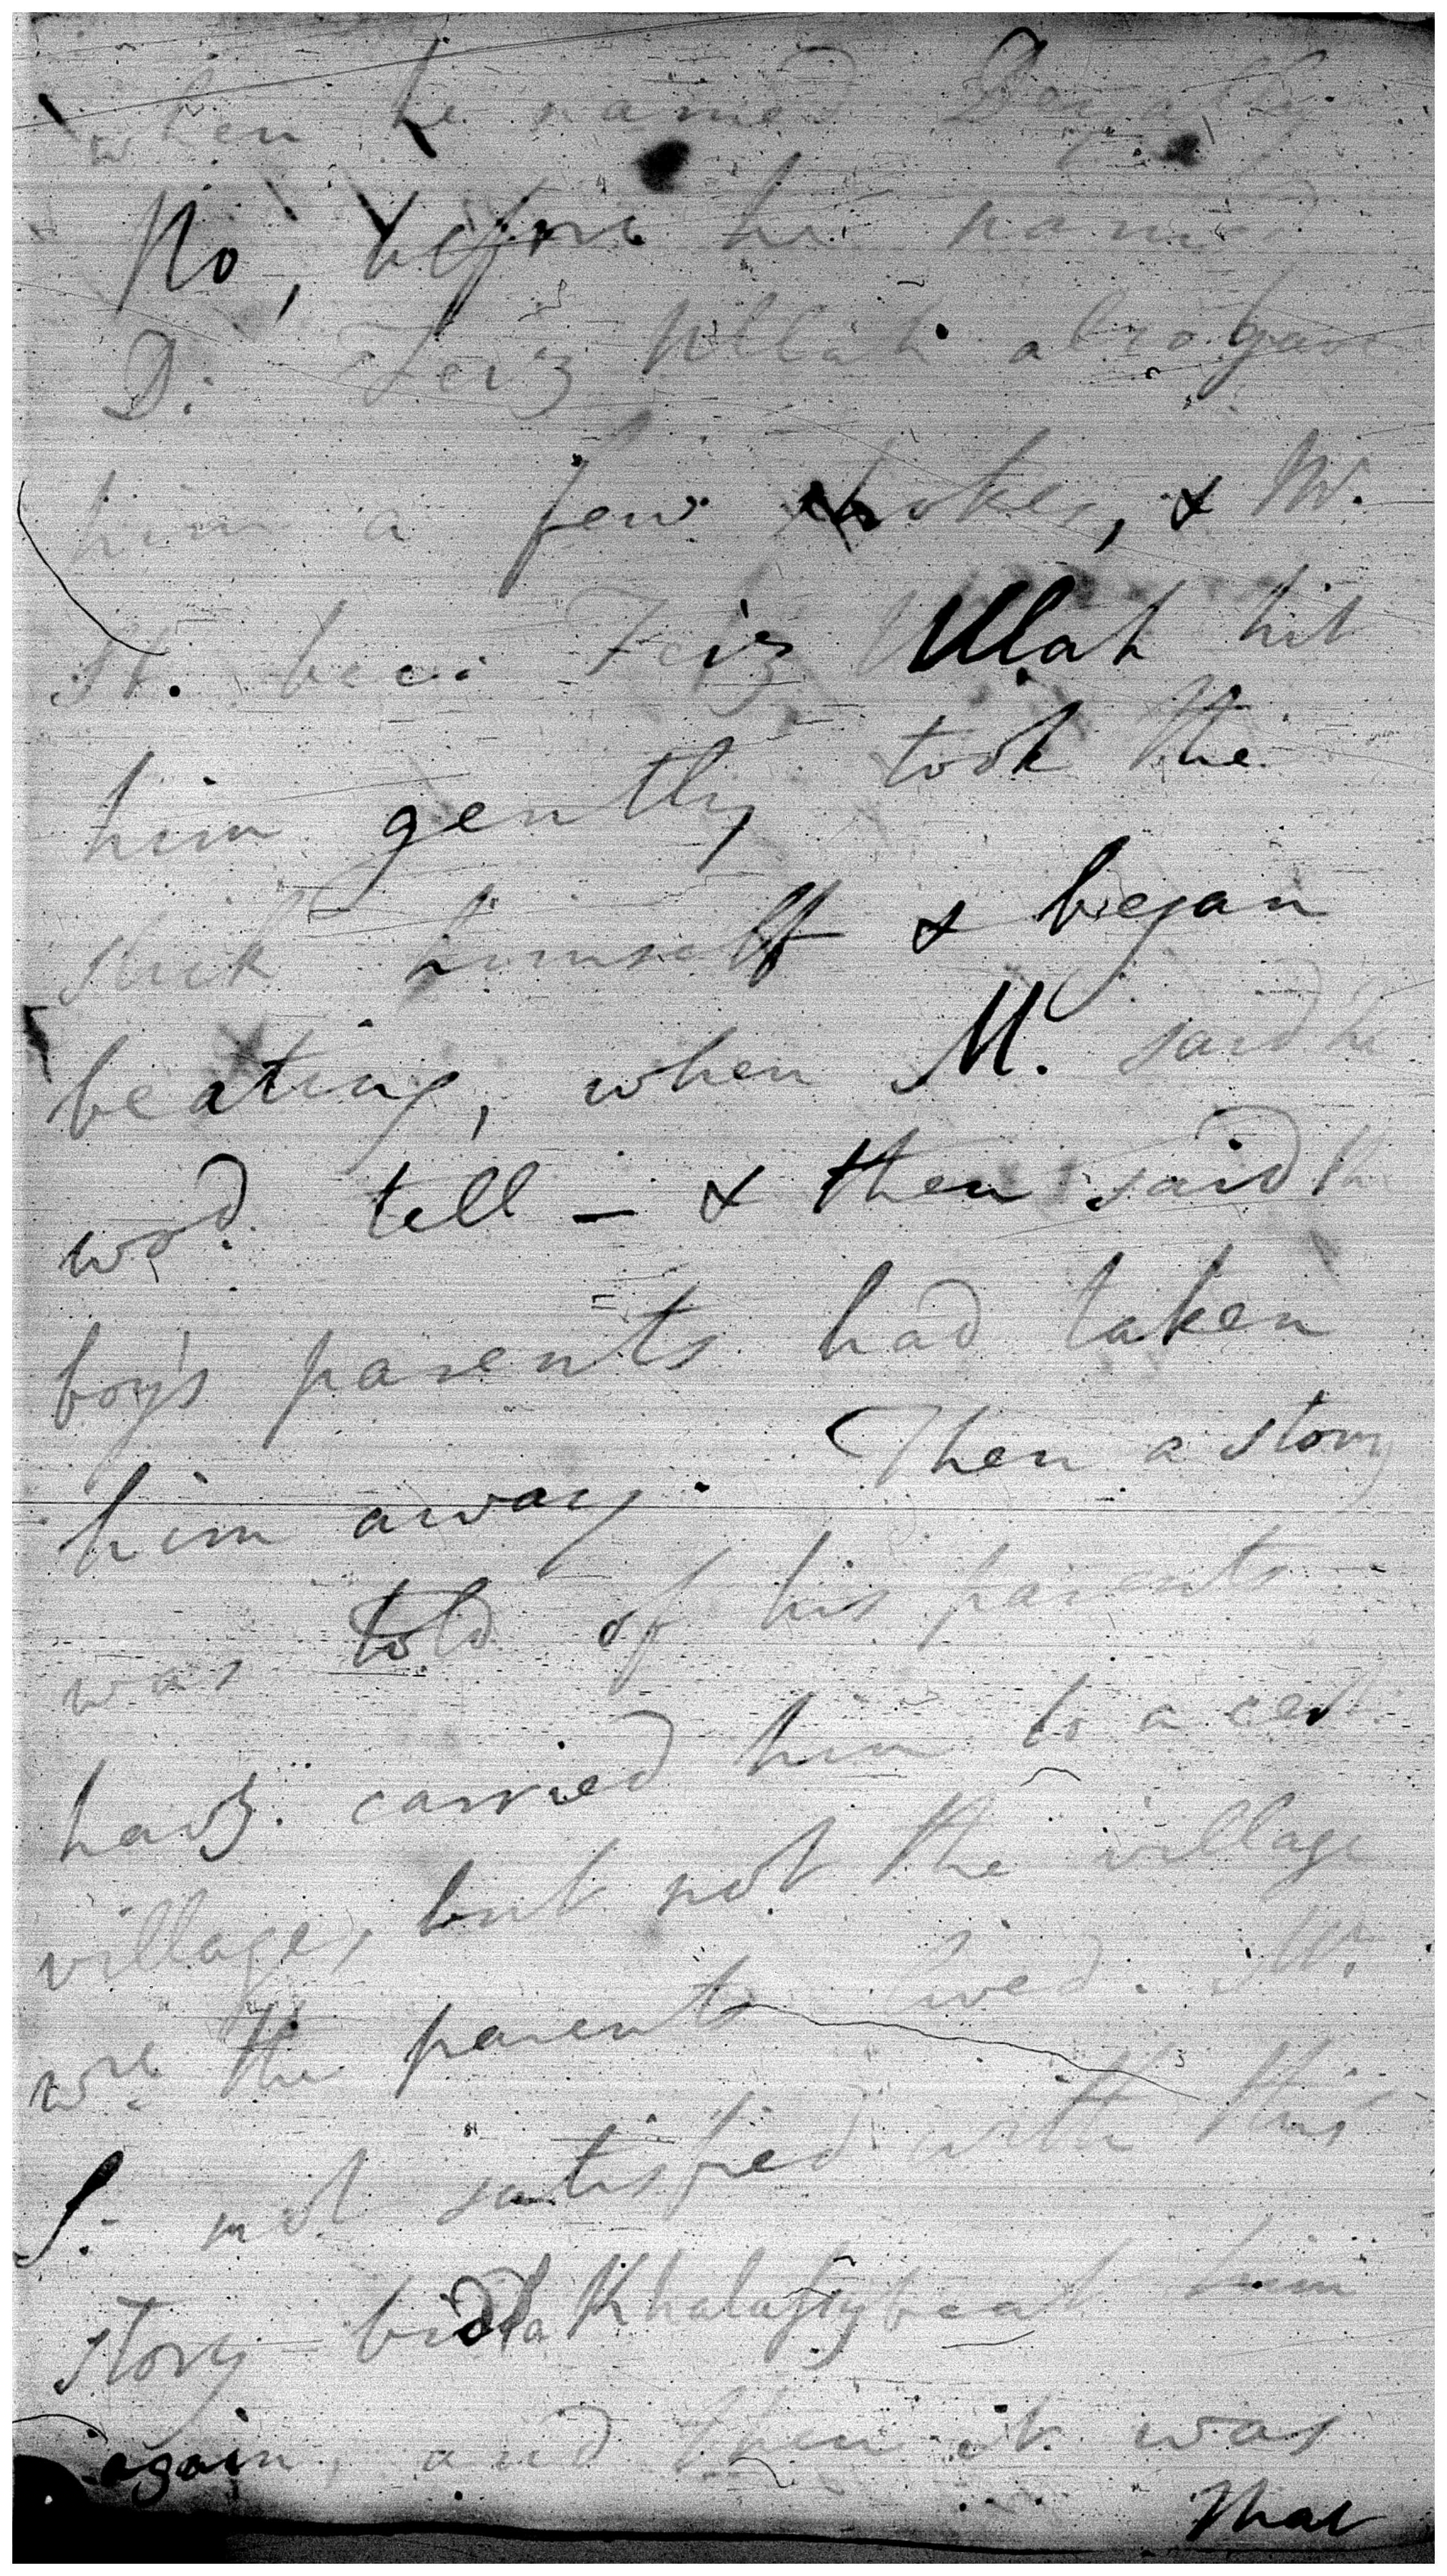 when he named
No, before he named
D. Feiz Ullah also gave
him a few strokes, & M.
St. becs. Feiz Ullah hit
him gently took the
stick himself & began
beating, when M. said he
wod. tell - & then said the
boy's parents had taken
him away. Then a story
was told of his parents
havg. carried him to a certn.
village, but not the village
wre. the parents lived. M.
S. not satisfied with this
story bid a Khalassy beat him
again, and then it was
that